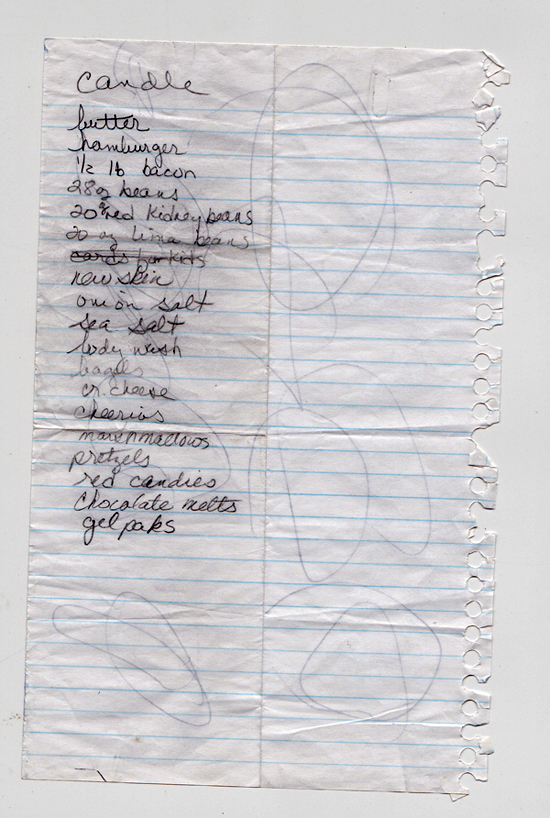 candle
butter
hamburger
1/2 lb bacon
28oz beans
20oz red kidney beans
20 oz lima beans
cards for kids
new skin
onion salt
sea salt
body wash
bagels
cr. cheese
cheerios
marshmallows
pretzels
red candies
chocolate melts
gel paks